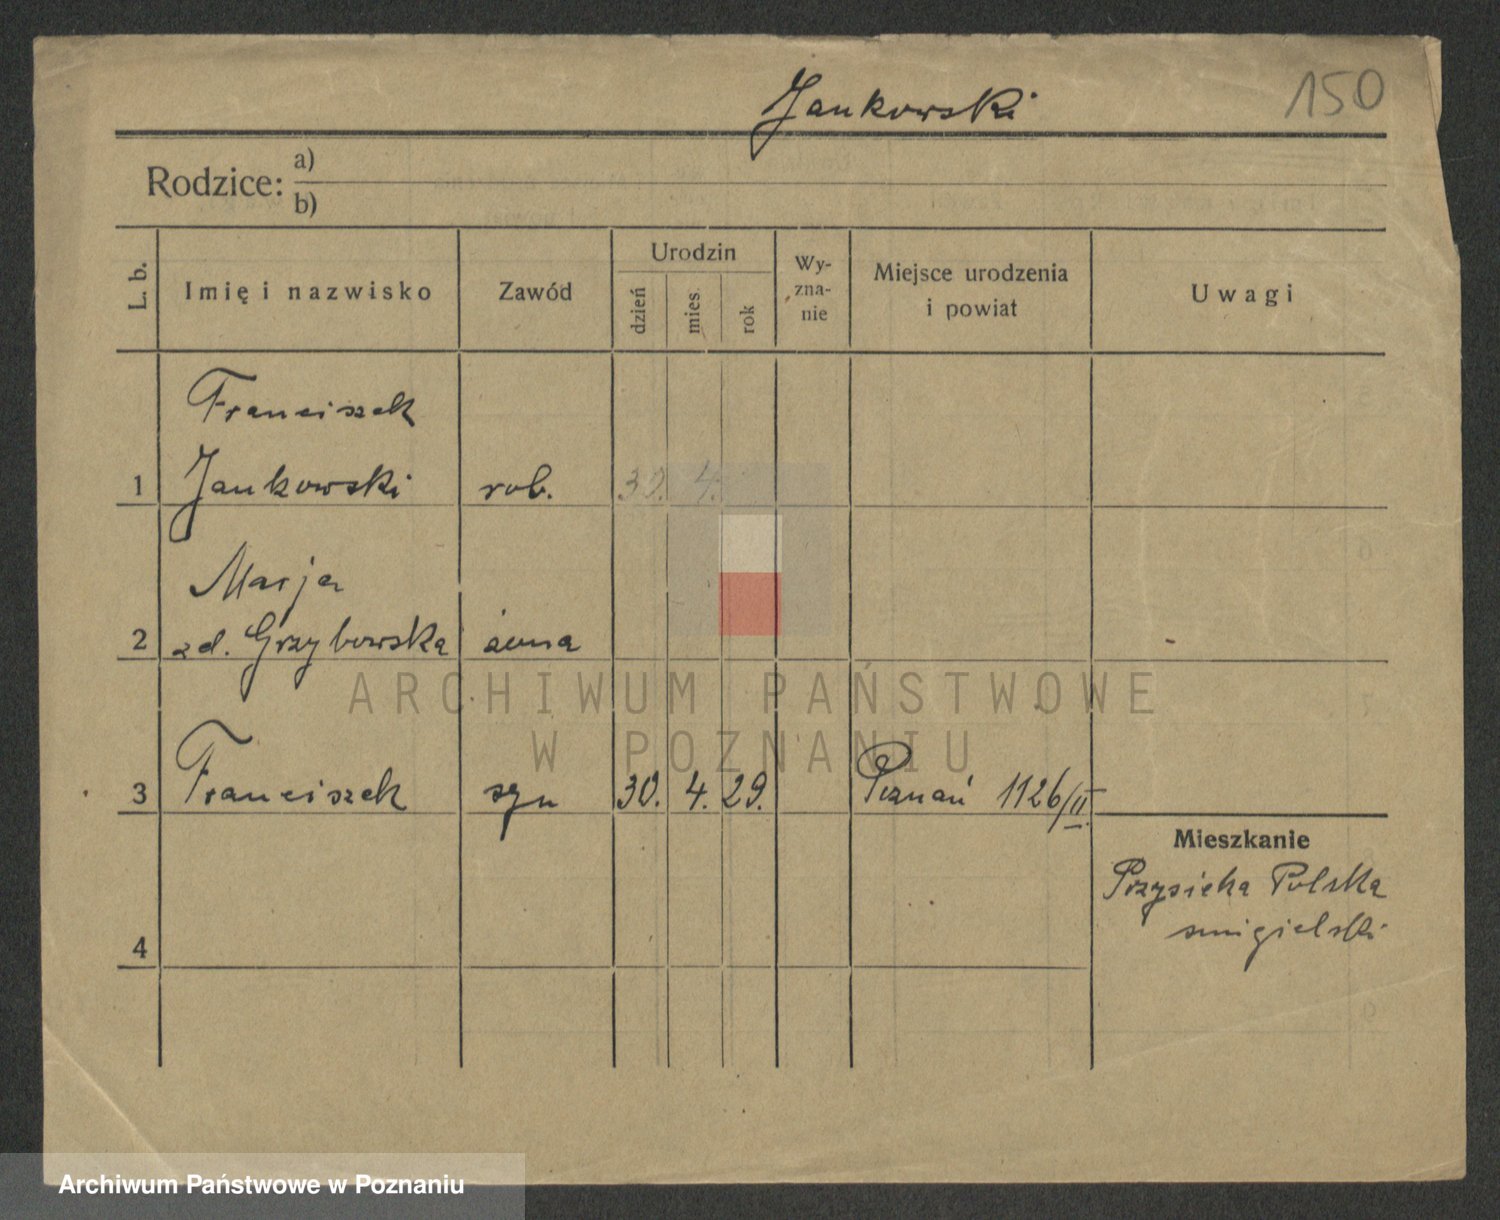 Jankowski 150
Rodzice: a)
b)
L. b. Imię i nazwisko Zawód Urodzin dzień mies. rok Wy-zna-nie Miejsce urodzenia i powiat Uwagi
Franciszek
1 Jankowski rob. 30. 4.
Marja
2 zd. Grzybowska żona
ARCHIWUM PAŃSTWOWE
W POZNANIU
3 Franciszek syn 30. 4. 29. Poznań 1126/II.
Mieszkanie
Przysieka Polska
smigielski
4
Archiwum Państwowe w Poznaniu